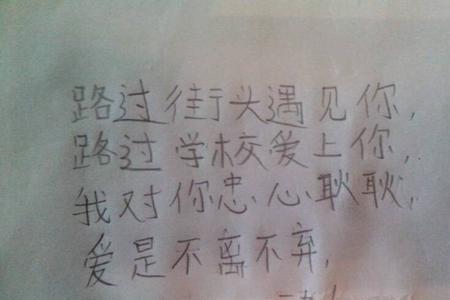 路过街头遇见你,
路过学校爱上你,
我对你忠心耿耿,
爱是不离不弃,